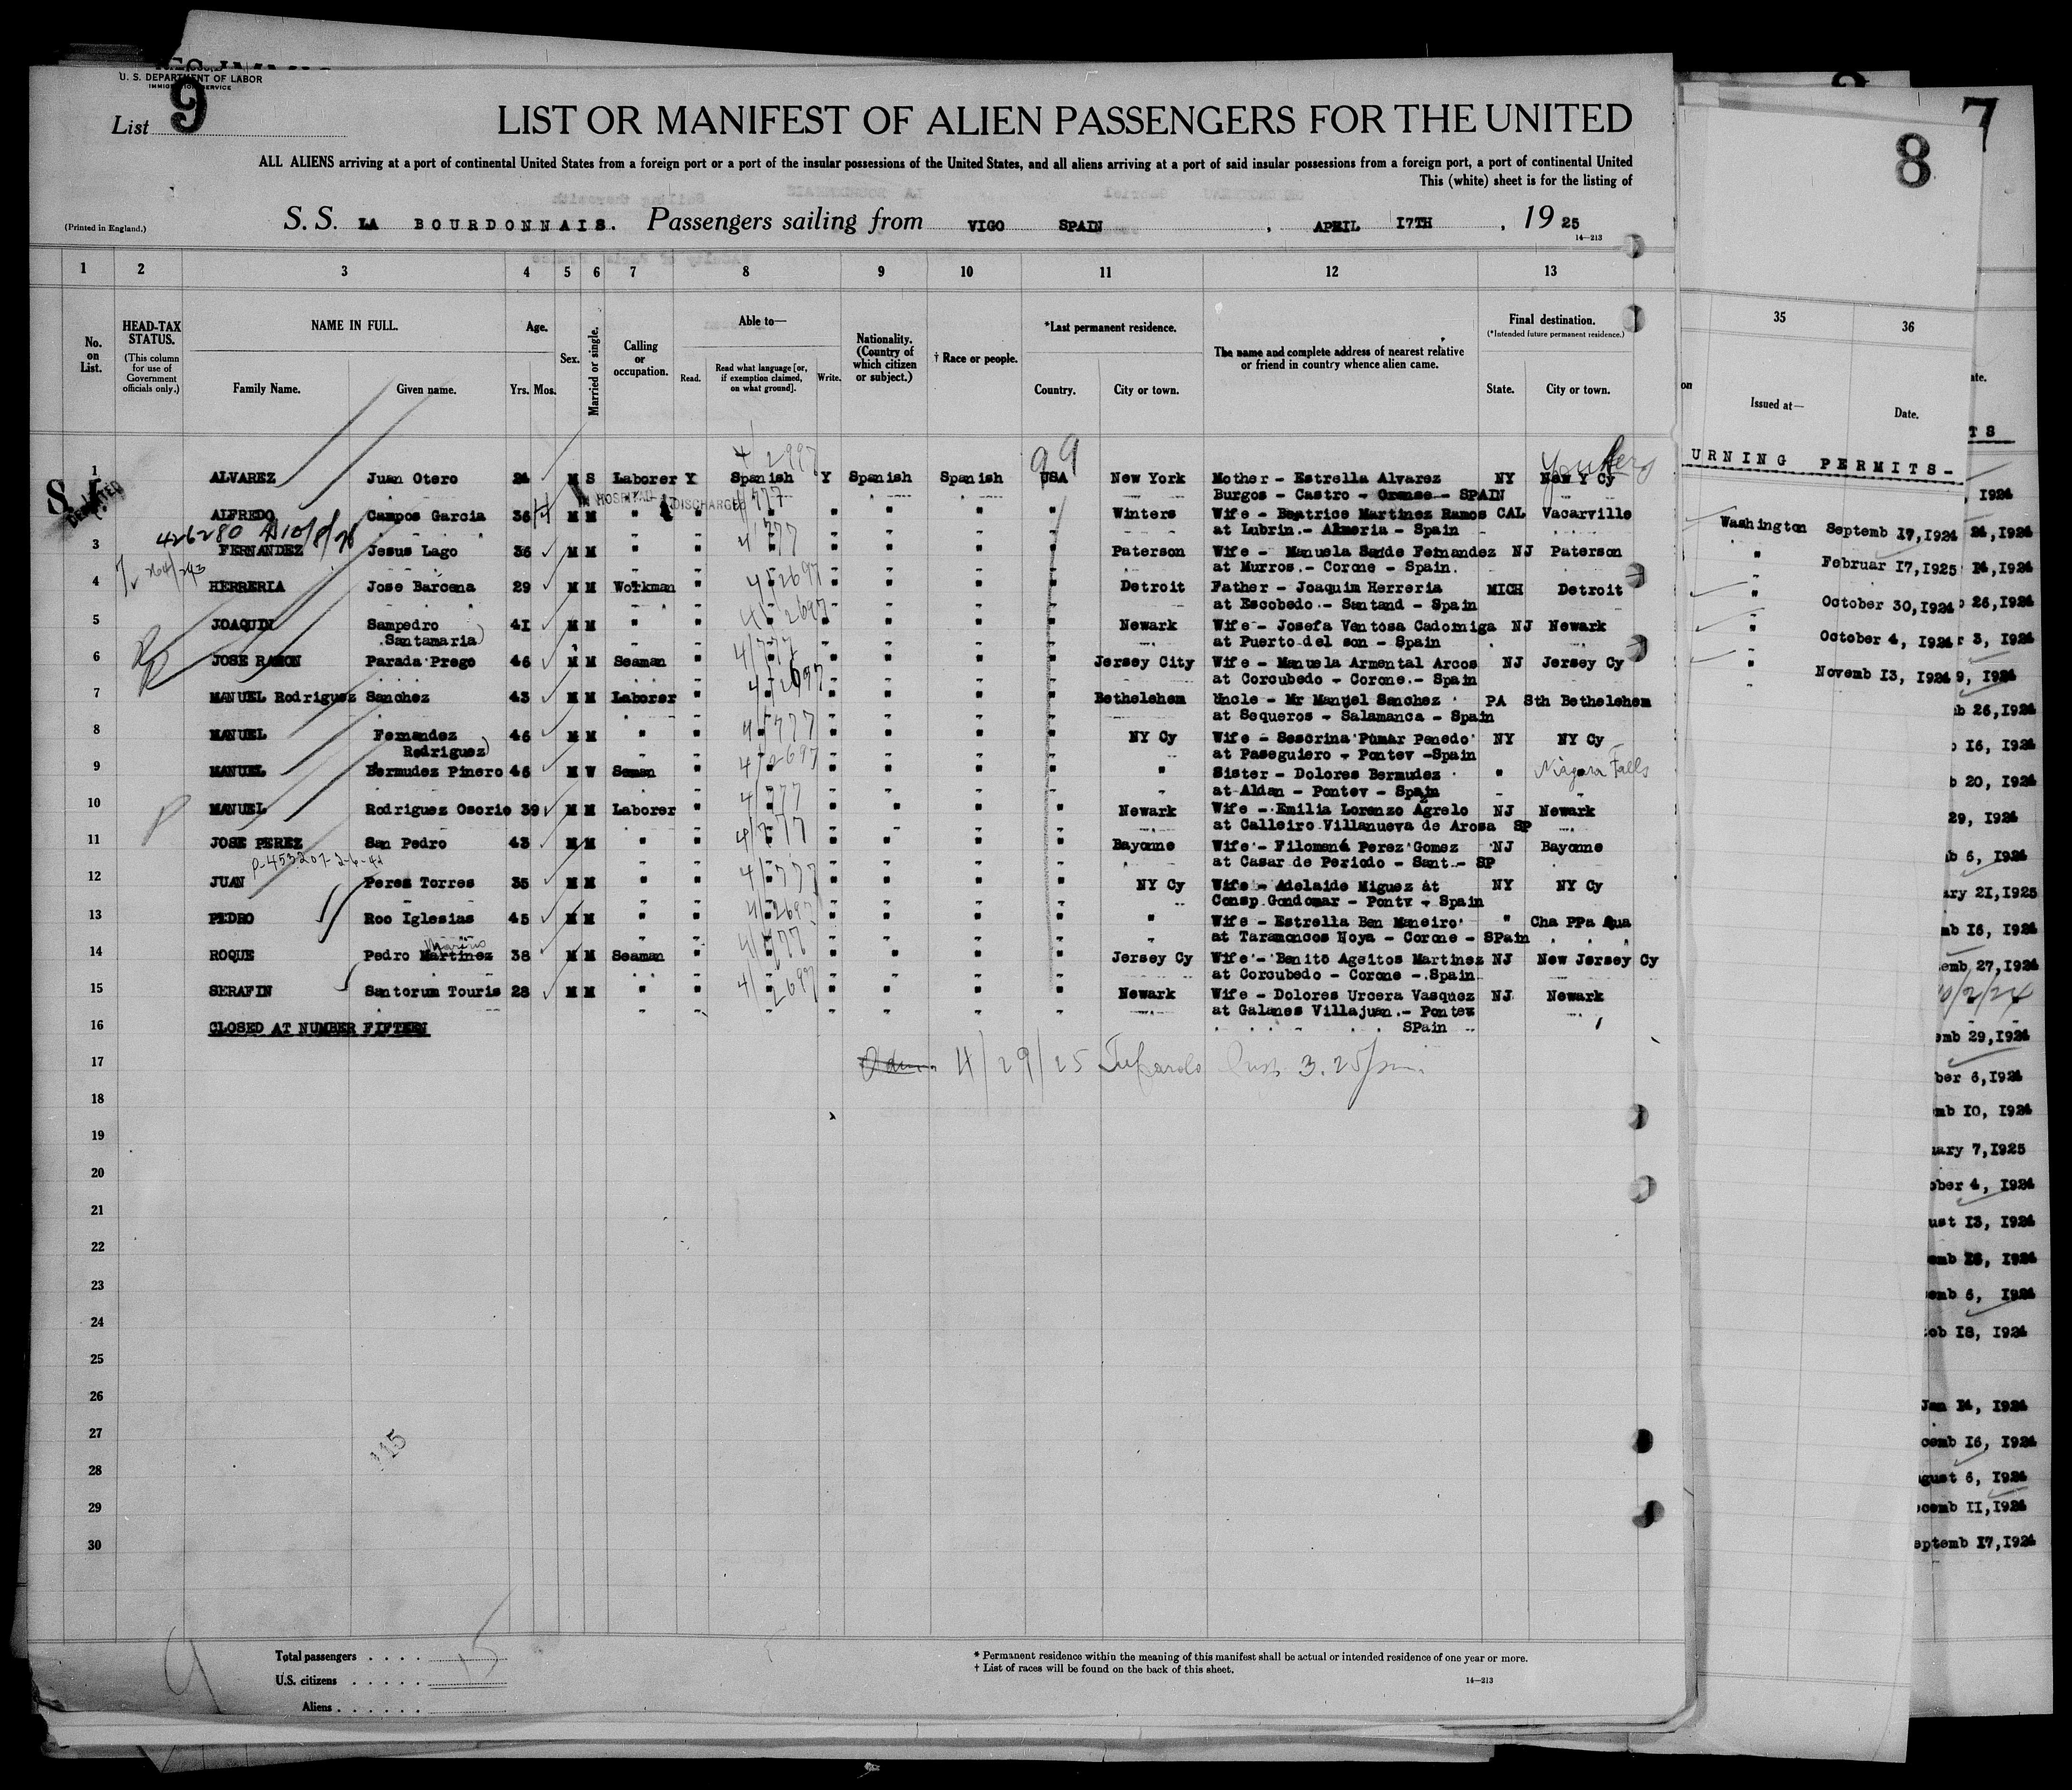 U. S. DEPARTMENT OF LABOR
IMMIGRATION SERVICE
List 9
LIST OR MANIFEST OF ALIEN PASSENGERS FOR THE UNITED
ALL ALIENS arriving at a port of continental United States from a foreign port or a port of the insular possessions of the United States, and all aliens arriving at a port of said insular possessions from a foreign port, a port of continental United
This (white) sheet is for the listing of
(Printed in England.)
S. S. LA BOURDONNAIS. Passengers sailing from VIGO SPAIN , APRIL I7TH , 19 25
14—213
1 2 3 4 5 6 7 8 9 10 11 12 13
No. on List.
HEAD-TAX STATUS.
(This column for use of Government officials only.)
NAME IN FULL.
Family Name. Given name.
Age.
Yrs. Mos.
Sex.
Married or single.
Calling or occupation.
Able to—
Read. Read what language [or, if exemption claimed, on what ground]. Write.
Nationality. (Country of which citizen or subject.)
† Race or people.
*Last permanent residence.
Country. City or town.
The name and complete address of nearest relative or friend in country whence alien came.
Final destination.
(*Intended future permanent residence.)
State. City or town.
99
4/2997
1 ALVAREZ Juan Otero 24 M S Laborer Y Spanish Y Spanish Spanish USA New York Mother - Estrella Alvarez NY New Y Cy
Burgos - Castro - Orense - SPAIN
IN HOSPITAL DISCHARGED 4/777
ALFREDO Campos Garcia 36 M M " " " " " " " Winters Wife - Beatrice Martinez Ramos CAL Vacarville
at Lubrin.- Almeria - Spain
426280 10/8/26
4/777
3 FERNANDEZ Jesus Lago 36 M M " " " " " " " Paterson Wife - Manuela Saude Fernandez NJ Paterson
at Murros.- Corone - Spain.
4/2697
4 HERRERIA Jose Barcena 29 M M Workman " " " " " " Detroit Father - Joaquim Herreria MICH Detroit
at Escobedo.- Santand - Spain
4/2697
5 JOAQUIN Sampedro 41 M M " " " " " " " Newark Wife - Josefa Ventosa Cadomiga NJ Newark
Santamaria) at Puerto del son - Spain
4/777
6 JOSE RAMON Parada Prego 46 M M Seaman " " " " " " Jersey City Wife - Manuela Armental Arcos NJ Jersey Cy
at Corcubedo - Corone.- Spain
4/2697
7 MANUEL Rodriguez Sanchez 43 M M Laborer " " " " " " Bethelehem Uncle - Mr Manuel Sanchez PA Sth Bethelehem
at Sequeros - Salamanca - Spain
4/777
8 MANUEL Fernandez 46 M M " " " " " " " NY Cy Wife - Sescrina Pumar Penedo NY NY Cy
Rodriguez) at Paseguiero - Pontev -Spain
4/2697
9 MANUEL Bermudez Pinero 46 M W Seman " " " " " " " Sister - Dolores Bermudez " Niagara Falls
at Aldan - Pontev - Spain
4/777
10 MANUEL Rodriguez Osorio 39 M M Laborer " " " " " " Newark Wife - Emilia Lorenzo Agrelo NJ Newark
at Calleiro Villanueva de Arosa SP
4/777
11 JOSE PEREZ San Pedro 43 M M " " " " " " " Bayonne Wife - Filomena Perez Gomez NJ Bayonne
at Casar de Periodo - Sant.- SP
4/777
12 JUAN Perez Torres 35 M M " " " " " " " NY Cy Wife - Adelaide Miguez at NY NY Cy
Consp Gondomar - Pontv - Spain
4/2697
13 PEDRO Roo Iglesias 45 M M " " " " " " " " Wife - Estrella Ben Maneiro " Cha PPa Qua
at Taramoncos Noya - Corone - SPain
Marino
4/777
14 ROQUE Pedro Martinez 38 M M Seaman " " " " " " Jersey Cy Wife - Benito Ageitos Martinez NJ New Jersey Cy
at Corcubedo - Corone -.Spain
4/2697
15 SERAFIN Santorum Touris 28 M M " " " " " " " Newark Wife - Dolores Urcera Vasquez NJ Newark
at Galanes Villajuan.- Pontev
SPain
16 CLOSED AT NUMBER FIFTEEN
17 4/29/25 3.25 pm
18
19
20
21
22
23
24
25
26
27
28
29
30
115
Total passengers . . . . 15
U.S. citizens . . . . .
Aliens . . . . . .
* Permanent residence within the meaning of this manifest shall be actual or intended residence of one year or more.
† List of races will be found on the back of this sheet.
14—213
8
7
35 36
Issued at— Date.
URNING PERMITS-
Washington Septemb 17,1924
" Februar 17,1925
" October 30,1924
" October 4, 1924
" Novemb 13, 1924